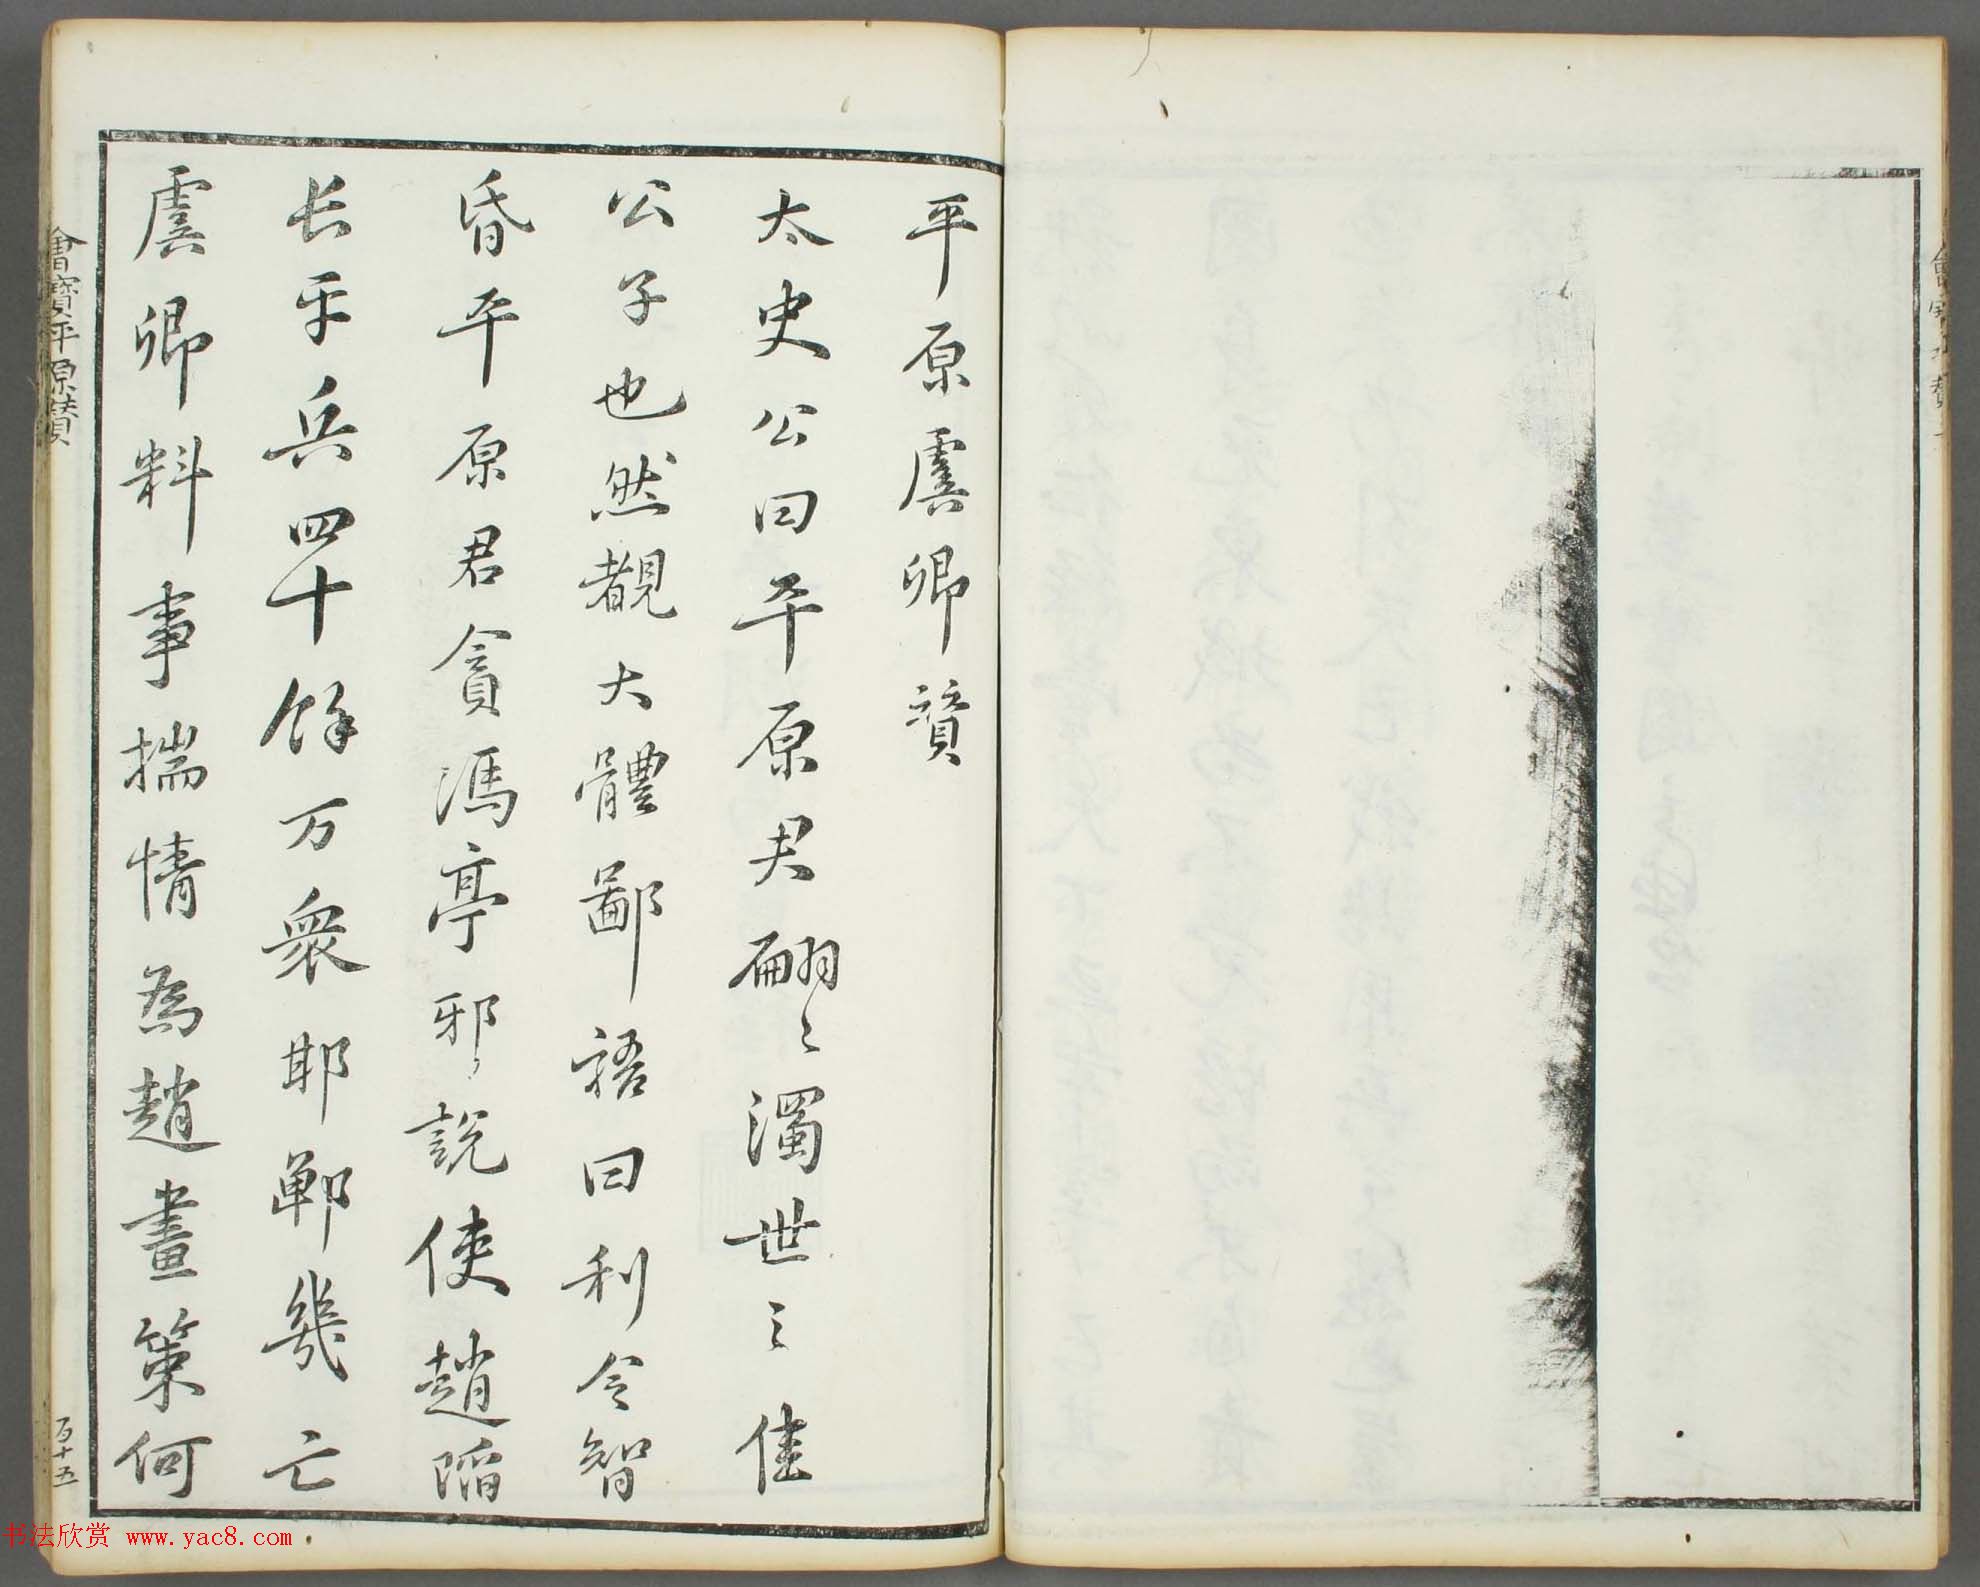 平原虞卿贊
太史公曰平原君翩〻濁世之佳
公子也然覩大體鄙語曰利令智
昏平原君貪馮亭邪說使趙陷
長平兵四十餘万衆邯鄲幾亡
虞卿料事揣情為趙畫策何
會寶平原贊
百十五
书法欣赏 www.yac8.com